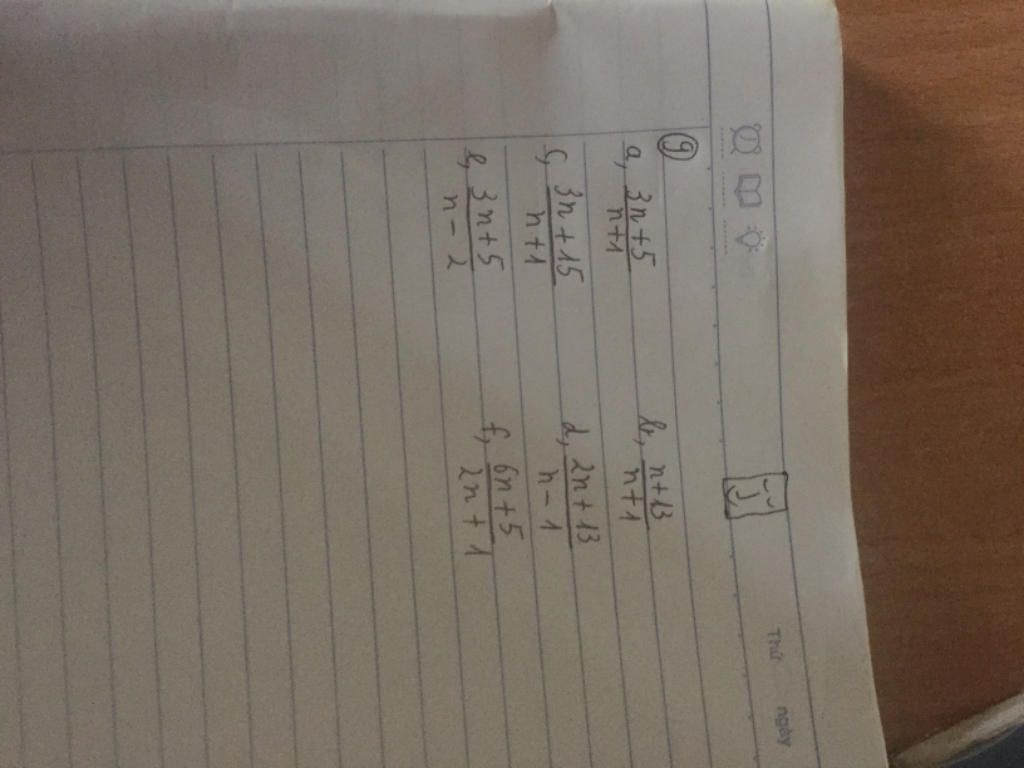 Thứ ngày
9
a, 3n+5/n+1 b, n+13/n+1
c, 3n+15/n+1 d, 2n+13/n-1
e, 3n+5/n-2 f, 6n+5/2n+1